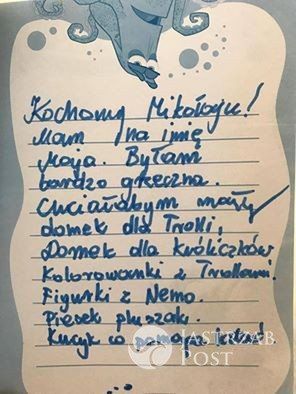 Kochany Mikołaju!
Mam na imię
Maja. Byłam
bardzo grzeczna.
Chciałabym mały
domek dla Trolli,
Domek dla króliczków
Kolorowanki z Trollami.
Figurki z Nemo.
Piesek pluszak.
Kucyk co
JASTRZĄB
POST